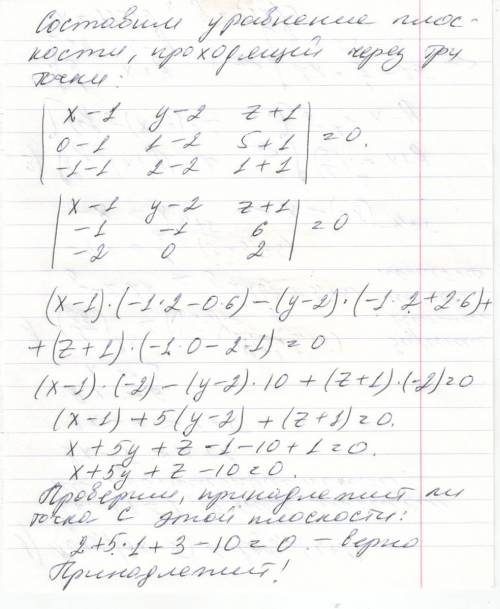 Составим уравнение плос-
кости, проходящей через три
точки:
| x-1 y-2 z+1 |
| 0-1 1-2 5+1 | =0.
| -1-1 2-2 1+1 |
| x-1 y-2 z+1 |
| -1 -1 6 | =0
| -2 0 2 |
(x-1)·(-1·2-0·6)-(y-2)·(-1·2+2·6)+
+(z+1)·(-1·0-2·1)=0
(x-1)·(-2)-(y-2)·10+(z+1)·(-2)=0
(x-1)+5(y-2)+(z+1)=0.
x+5y+z-1-10+1=0.
x+5y+z-10=0.
Проверим, принадлежит ли
точка C этой плоскости:
2+5·1+3-10=0 - верно
Принадлежит!